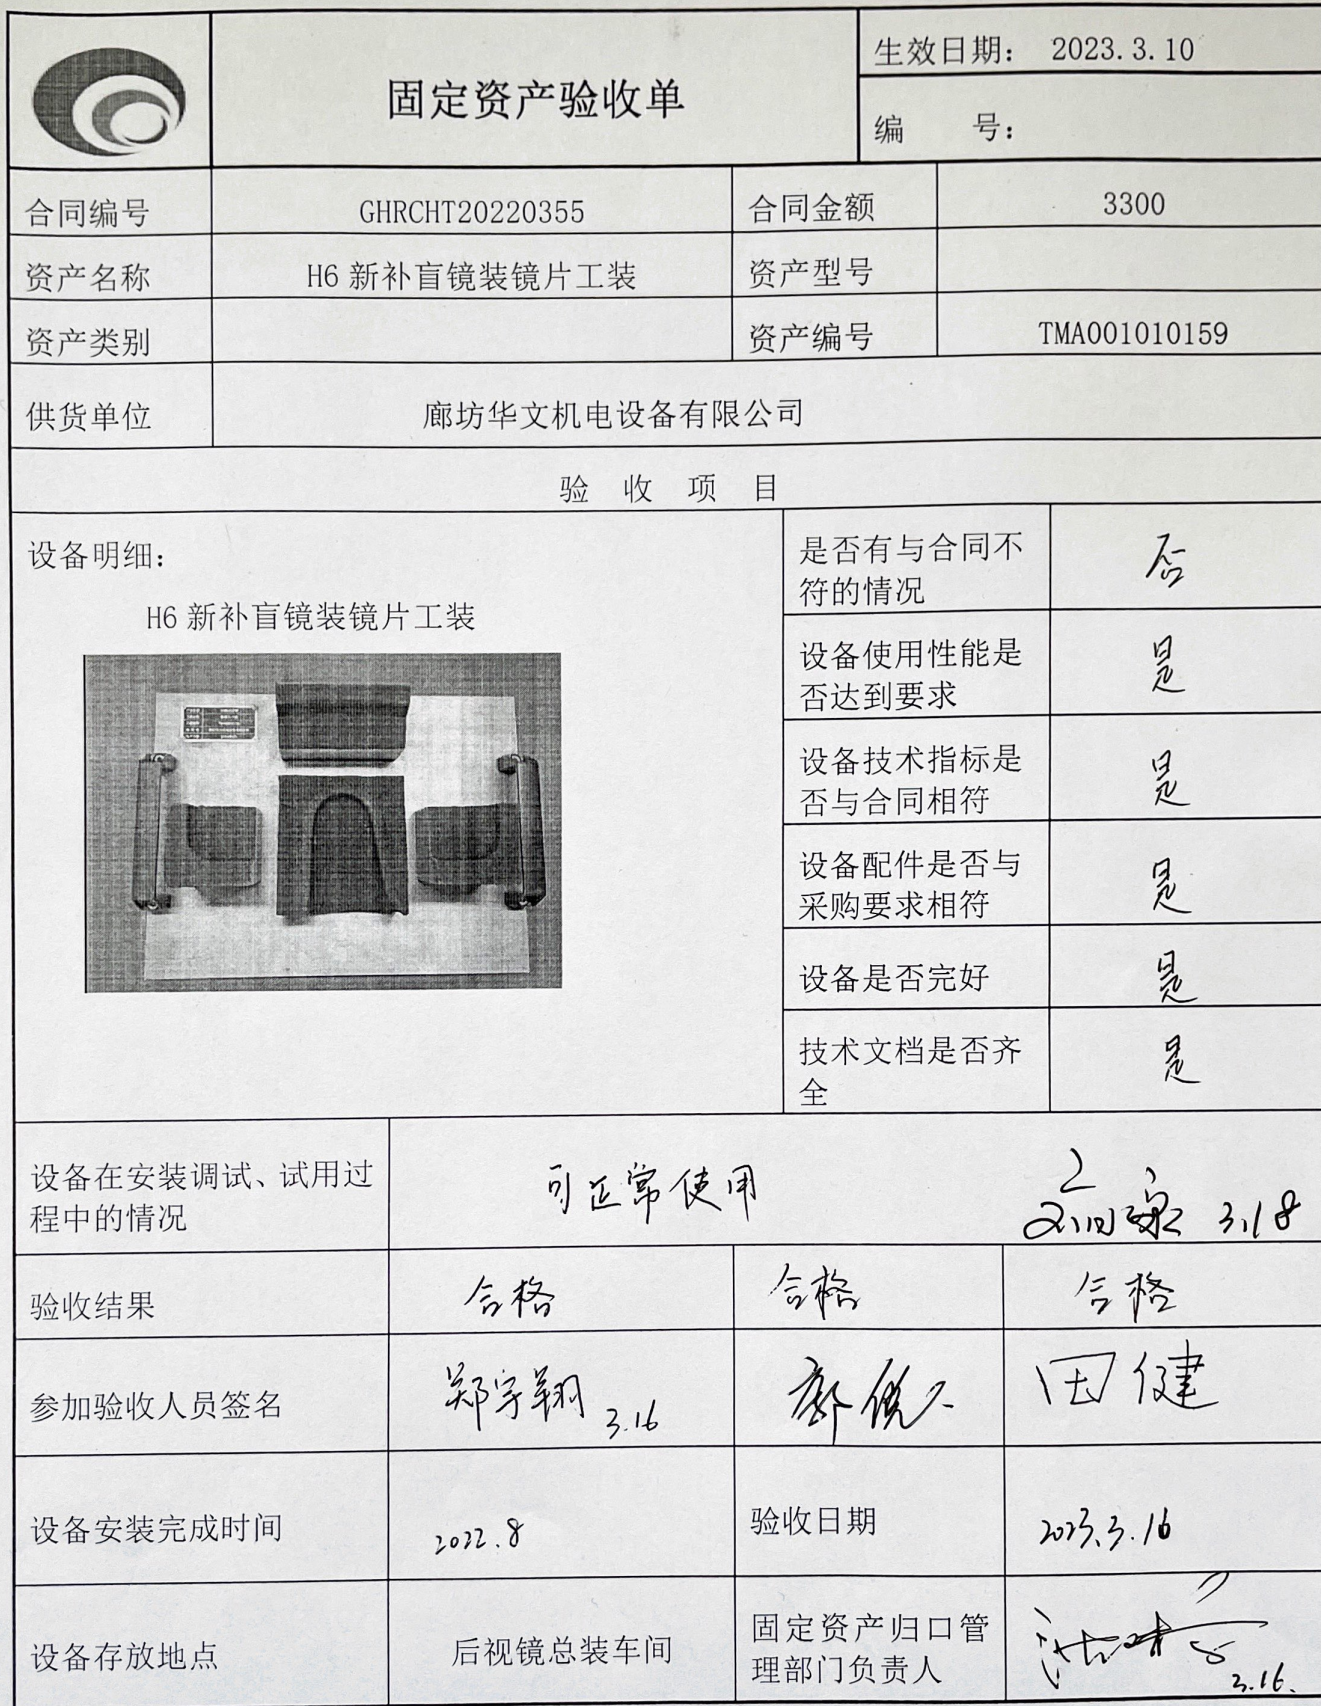 固定资产验收单
生效日期： 2023.3.10
编 号：
合同编号 GHRCHT20220355 合同金额 3300
资产名称 H6 新补盲镜装镜片工装 资产型号
资产类别 资产编号 TMA001010159
供货单位 廊坊华文机电设备有限公司
验 收 项 目
设备明细：
H6 新补盲镜装镜片工装
是否有与合同不
符的情况
否
设备使用性能是
否达到要求
是
设备技术指标是
否与合同相符
是
设备配件是否与
采购要求相符
是
设备是否完好
是
技术文档是否齐
全
是
设备在安装调试、试用过
程中的情况
可正常使用
3.18
验收结果 合格 合格 合格
参加验收人员签名 郑宇翔 3.16 田健
设备安装完成时间 2022.8 验收日期 2023.3.16
设备存放地点 后视镜总装车间
固定资产归口管
理部门负责人
3.16.